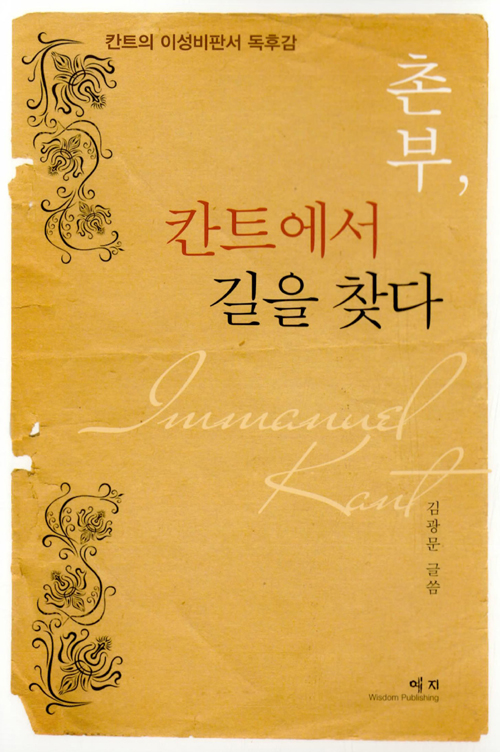 칸트의 이성비판서 독후감
촌
부,
칸트에서
길을 찾다
Immanuel
Kant
김광문 글씀
예지
Wisdom Publishing